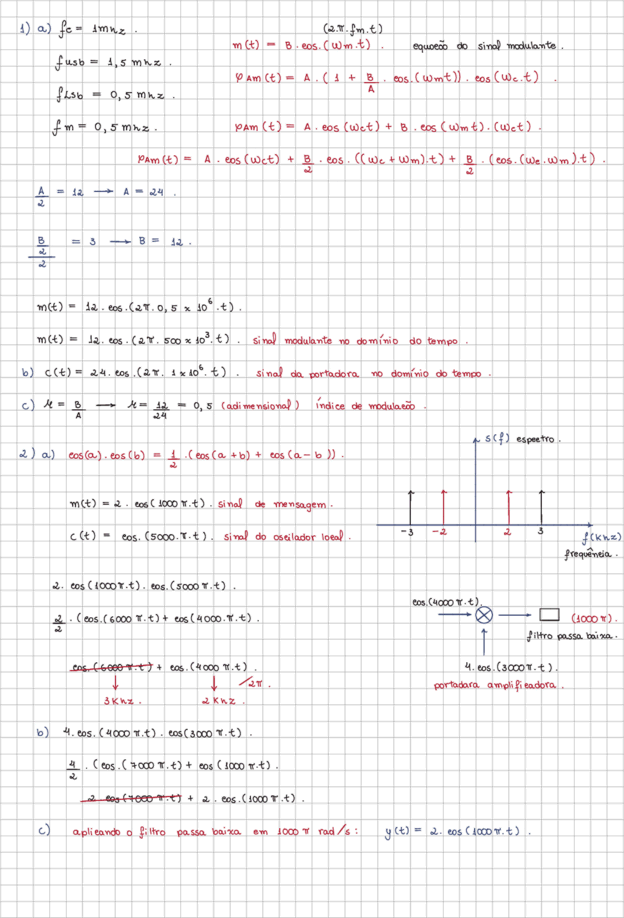 1) a) fc = 1mhz .
(2.π.fm.t)
m(t) = B.cos.(ωm.t) . equação do sinal modulante.
fusb = 1,5 mhz .
φAm(t) = A.(1 + B/A . cos.(ωmt)).cos(ωc.t) .
fLsb = 0,5 mhz .
fm = 0,5 mhz .
φAm(t) = A.cos(ωct) + B.cos(ωmt).(ωct) .
φAm(t) = A.cos(ωct) + B/2 .cos.((ωc + ωm).t) + B/2 .(cos.(ωc.ωm).t) .
A/2 = 12 → A = 24 .
B/2/2 = 3 → B = 12 .
m(t) = 12.cos.(2π.0,5 x 10⁶.t) .
m(t) = 12.cos.(2π.500 x 10³.t) . sinal modulante no domínio do tempo .
b) c(t) = 24.cos.(2π.1x10⁶.t) . sinal da portadora no domínio do tempo .
c) μ = B/A → μ = 12/24 = 0,5 (adimensional) índice de modulação .
2) a) cos(a).cos(b) = 1/2 .(cos(a+b) + cos(a-b)) .
s(f) espectro .
m(t) = 2.cos(1000π.t) . sinal de mensagem .
c(t) = cos.(5000.π.t) . sinal do oscilador local .
-3 -2 2 3 f(Khz)
frequência .
2.cos(1000π.t).cos(5000π.t) .
2/2 .(cos.(6000π.t) + cos(4000.π.t) .
cos.(4000π.t)
(1000π) .
filtro passa baixa .
cos.(6000π.t) + cos.(4000π.t) .
/2π .
3Khz . 2Khz .
4.cos.(3000π.t) .
portadara amplificadora .
b) 4.cos.(4000π.t).cos(3000π.t) .
4/2 .(cos.(7000π.t) + cos(1000π.t) .
2 cos(7000π.t) + 2.cos.(1000π.t) .
c) aplicando o filtro passa baixa em 1000π rad/s: y(t) = 2.cos(1000π.t) .